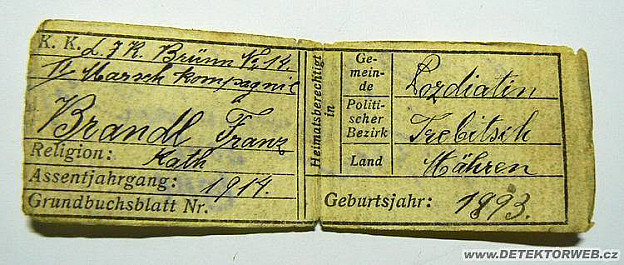 K. K. L. J. R. Brünn № 14.
Marsch kompagnie
Brandl Franz
Religion: Kath
Assentjahrgang: 1914.
Grundbuchsblatt Nr.
Heimatsberechtigt in
Ge-
mein-
de
Lozdiatin
Politi-
scher
Bezirk
Trebitsch
Land
Mähren
Geburtsjahr: 1893.
© www.DETEKTORWEB.cz